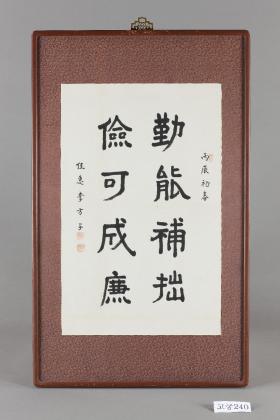 丙辰初春
勤能補拙
儉可成廉
佳惠 李方子
240